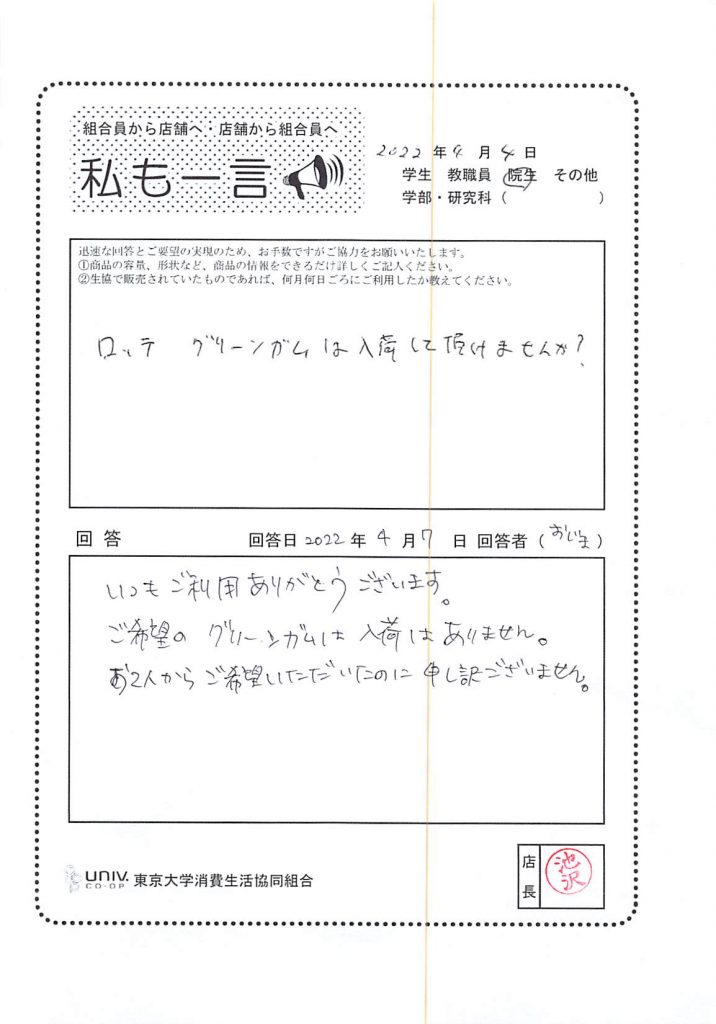 組合員から店舗へ・店舗から組合員へ
私も一言
2022年4月4日
学生 教職員 院生 その他
学部・研究科( )
迅速な回答とご要望の実現のため、お手数ですがご協力をお願いいたします。
①商品の容量、形状など、商品の情報をできるだけ詳しくご記入ください。
②生協で販売されていたものであれば、何月何日ごろにご利用したか教えてください。
ロッテ グリーンガムは入荷して頂けませんか?
回答 回答日2022年4月7日 回答者(おじま)
いつもご利用ありがとうございます。
ご希望のグリーンガムは入荷はありません。
お2人からご希望いただいたのに申し訳ございません。
UNIV. CO-OP 東京大学消費生活協同組合
店長 池沢